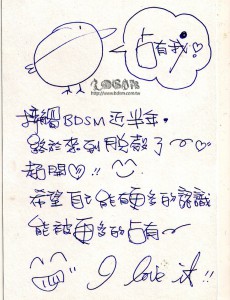 占有我♡
BDSM
http://www.bdsm.com.tw
接觸BDSM近半年,
終於來到脫殼了~♡
超開♡!!
希望自己能有更多的認識
能被更多的占有~
I love it!!